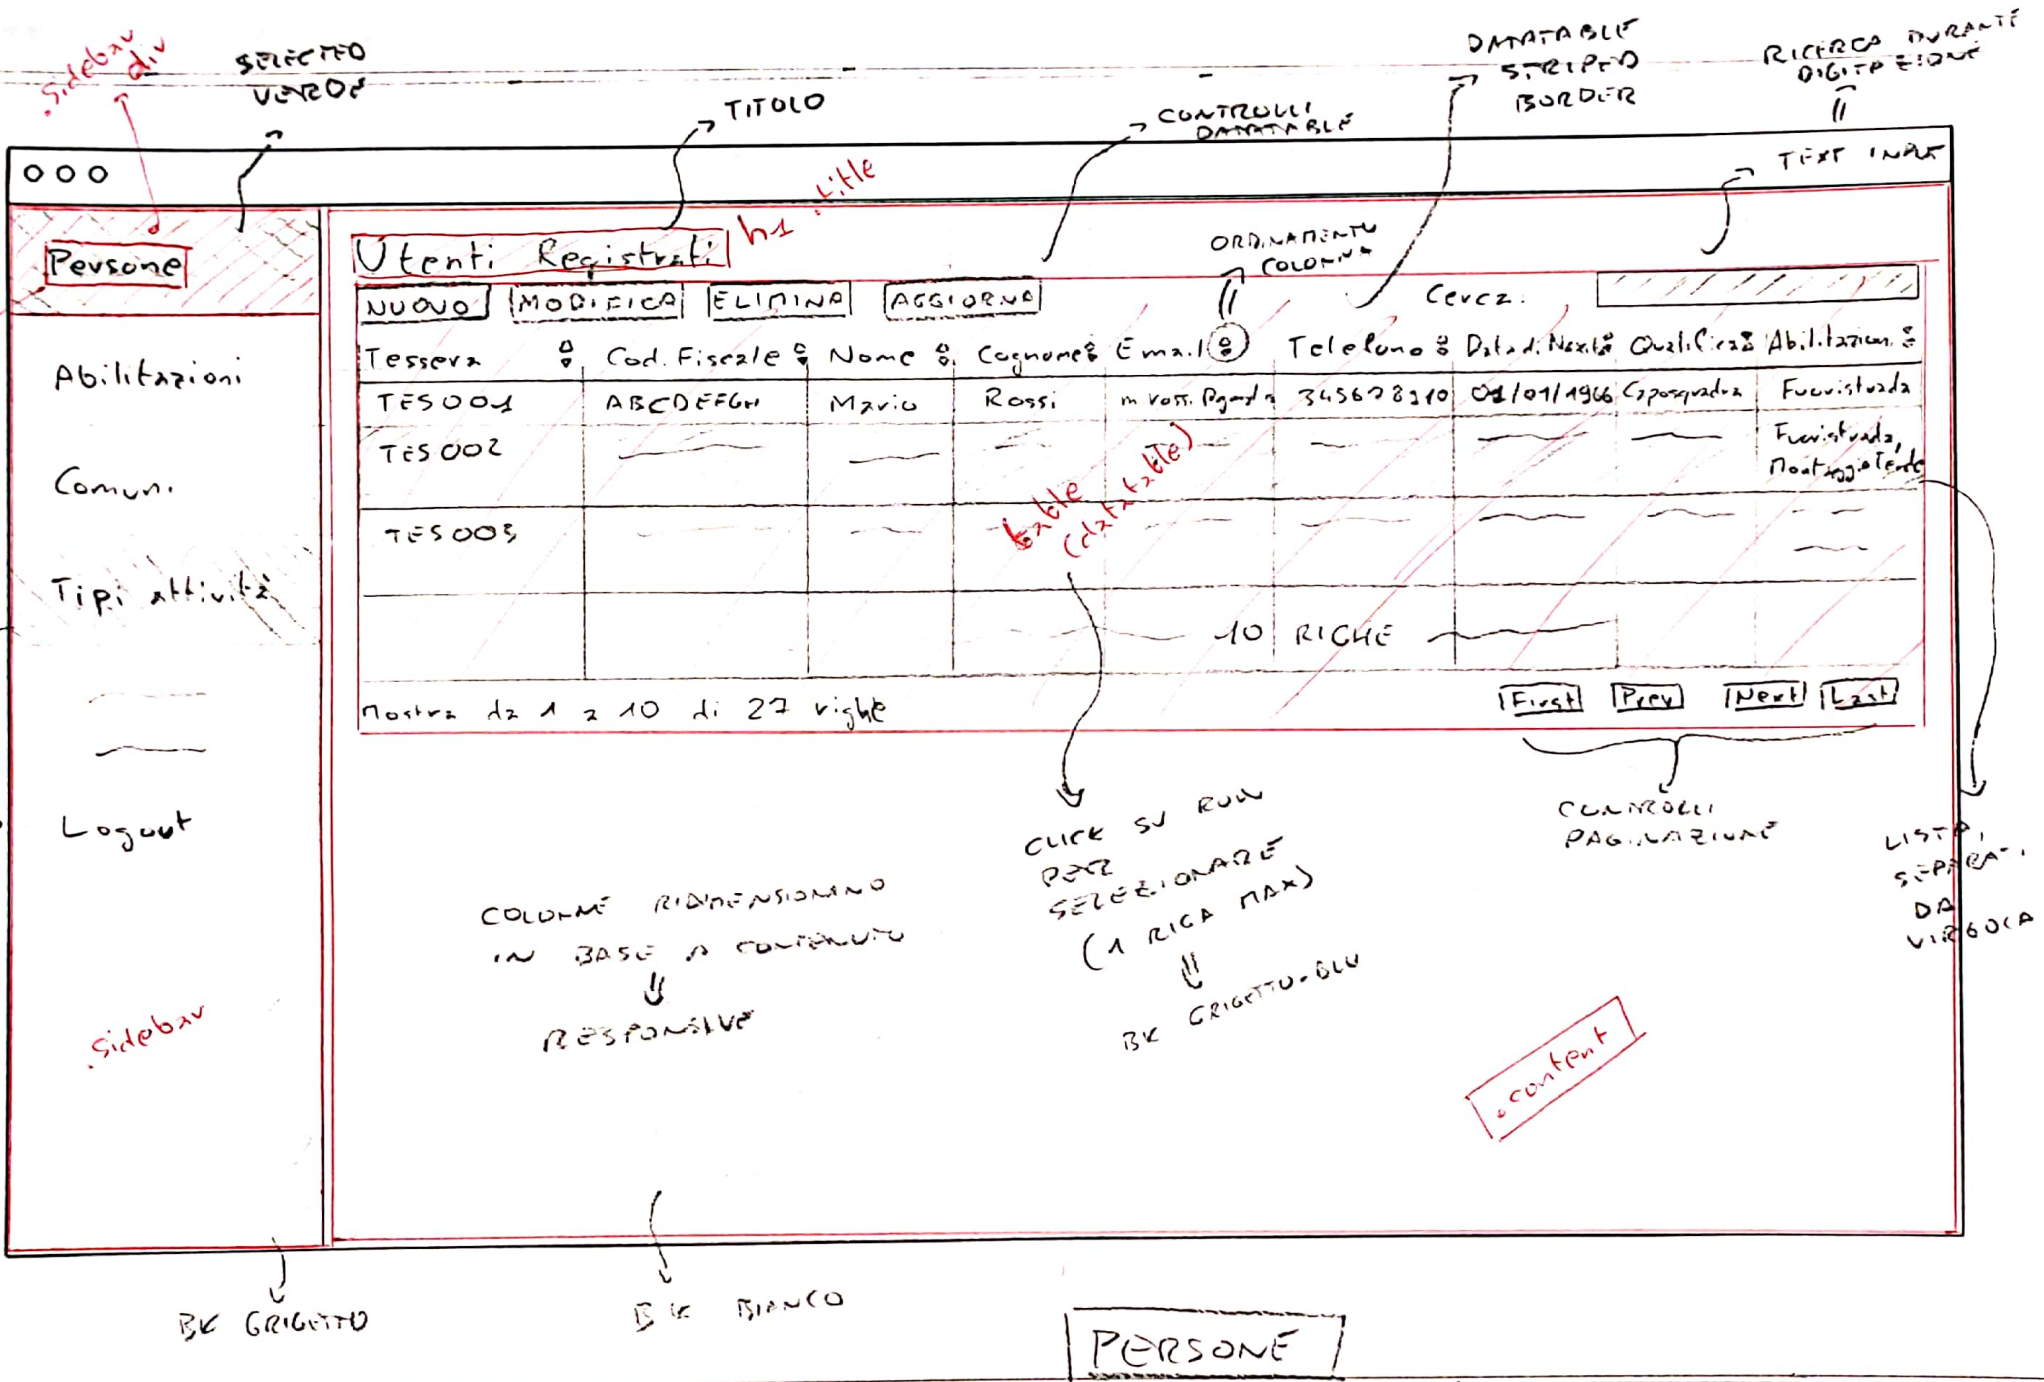 .sidebar
div
SELECTED
VERDE
TITOLO
CONTROLLI
DATATABLE
DATATABLE
STRIPED
BORDER
RICERCA DURANTE
DIGITAZIONE
TEXT INPUT
Persone
Abilitazioni
Comuni
Tipi attività
Logout
.sidebar
Utenti Registrati
h1 .title
ORDINAMENTO
COLONNA
NUOVO MODIFICA ELIMINA AGGIORNA
Cerca:
Tessera Cod. Fiscale Nome Cognome Email Telefono Data di Nascita Qualifica Abilitazioni
TES001 ABCDEFGH Mario Rossi 345678910 01/01/1966 Caposquadra Fuoristrada
TES002 Fuoristrada,
Montaggio Tende
TES003
table
(datatable)
10 RIGHE
Mostra da 1 a 10 di 27 righe
First Prev Next Last
CONTROLLI
PAGINAZIONE
LISTA,
SEPARAT.
DA
VIRGOLA
CLICK SU ROW
PER
SELEZIONARE
(1 RIGA MAX)
BK GRIGETTO-BLU
COLONNE RIDIMENSIONANO
IN BASE A CONTENUTO
RESPONSIVE
.content
BK GRIGETTO
BK BIANCO
PERSONE